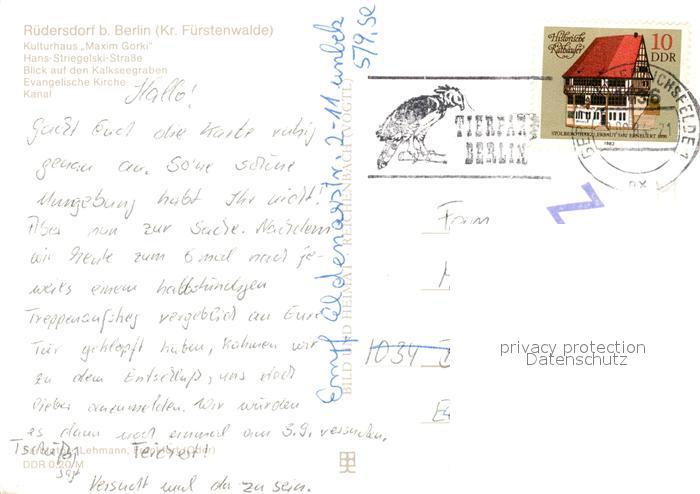 Rüdersdorf b. Berlin (Kr. Fürstenwalde)
Kulturhaus „Maxim Gorki"
Hans-Striegelski-Straße
Blick auf den Kalkseegraben
Evangelische Kirche
Kanal
Hallo!
Guckt Euch die Karte ruhig
genau an. So'ne schöne
Umgebung habt Ihr nicht!
Aber nun zur Sache. Nachdem
wir heute zum 6 mal nach je-
weils einem halbstündigen
Treppenaufstieg vergeblich an Eure
Tür geklopft haben, kamen wir
zu dem Entschluß, uns doch
lieber anzumelden. Wir würden
es dann noch einmal am 3.9. versuchen.
Tschüß! sagt
Lehmann, (Oder)
DDR 0,20 M
Versucht mal da zu sein.
BILD UND HEIMAT REICHENBACH VOGTL
2-11 unbek
579, SE
Historische Rathäuser
10
DDR
1982
TIERPARK
BERLIN
1034
privacy protection
Datenschutz